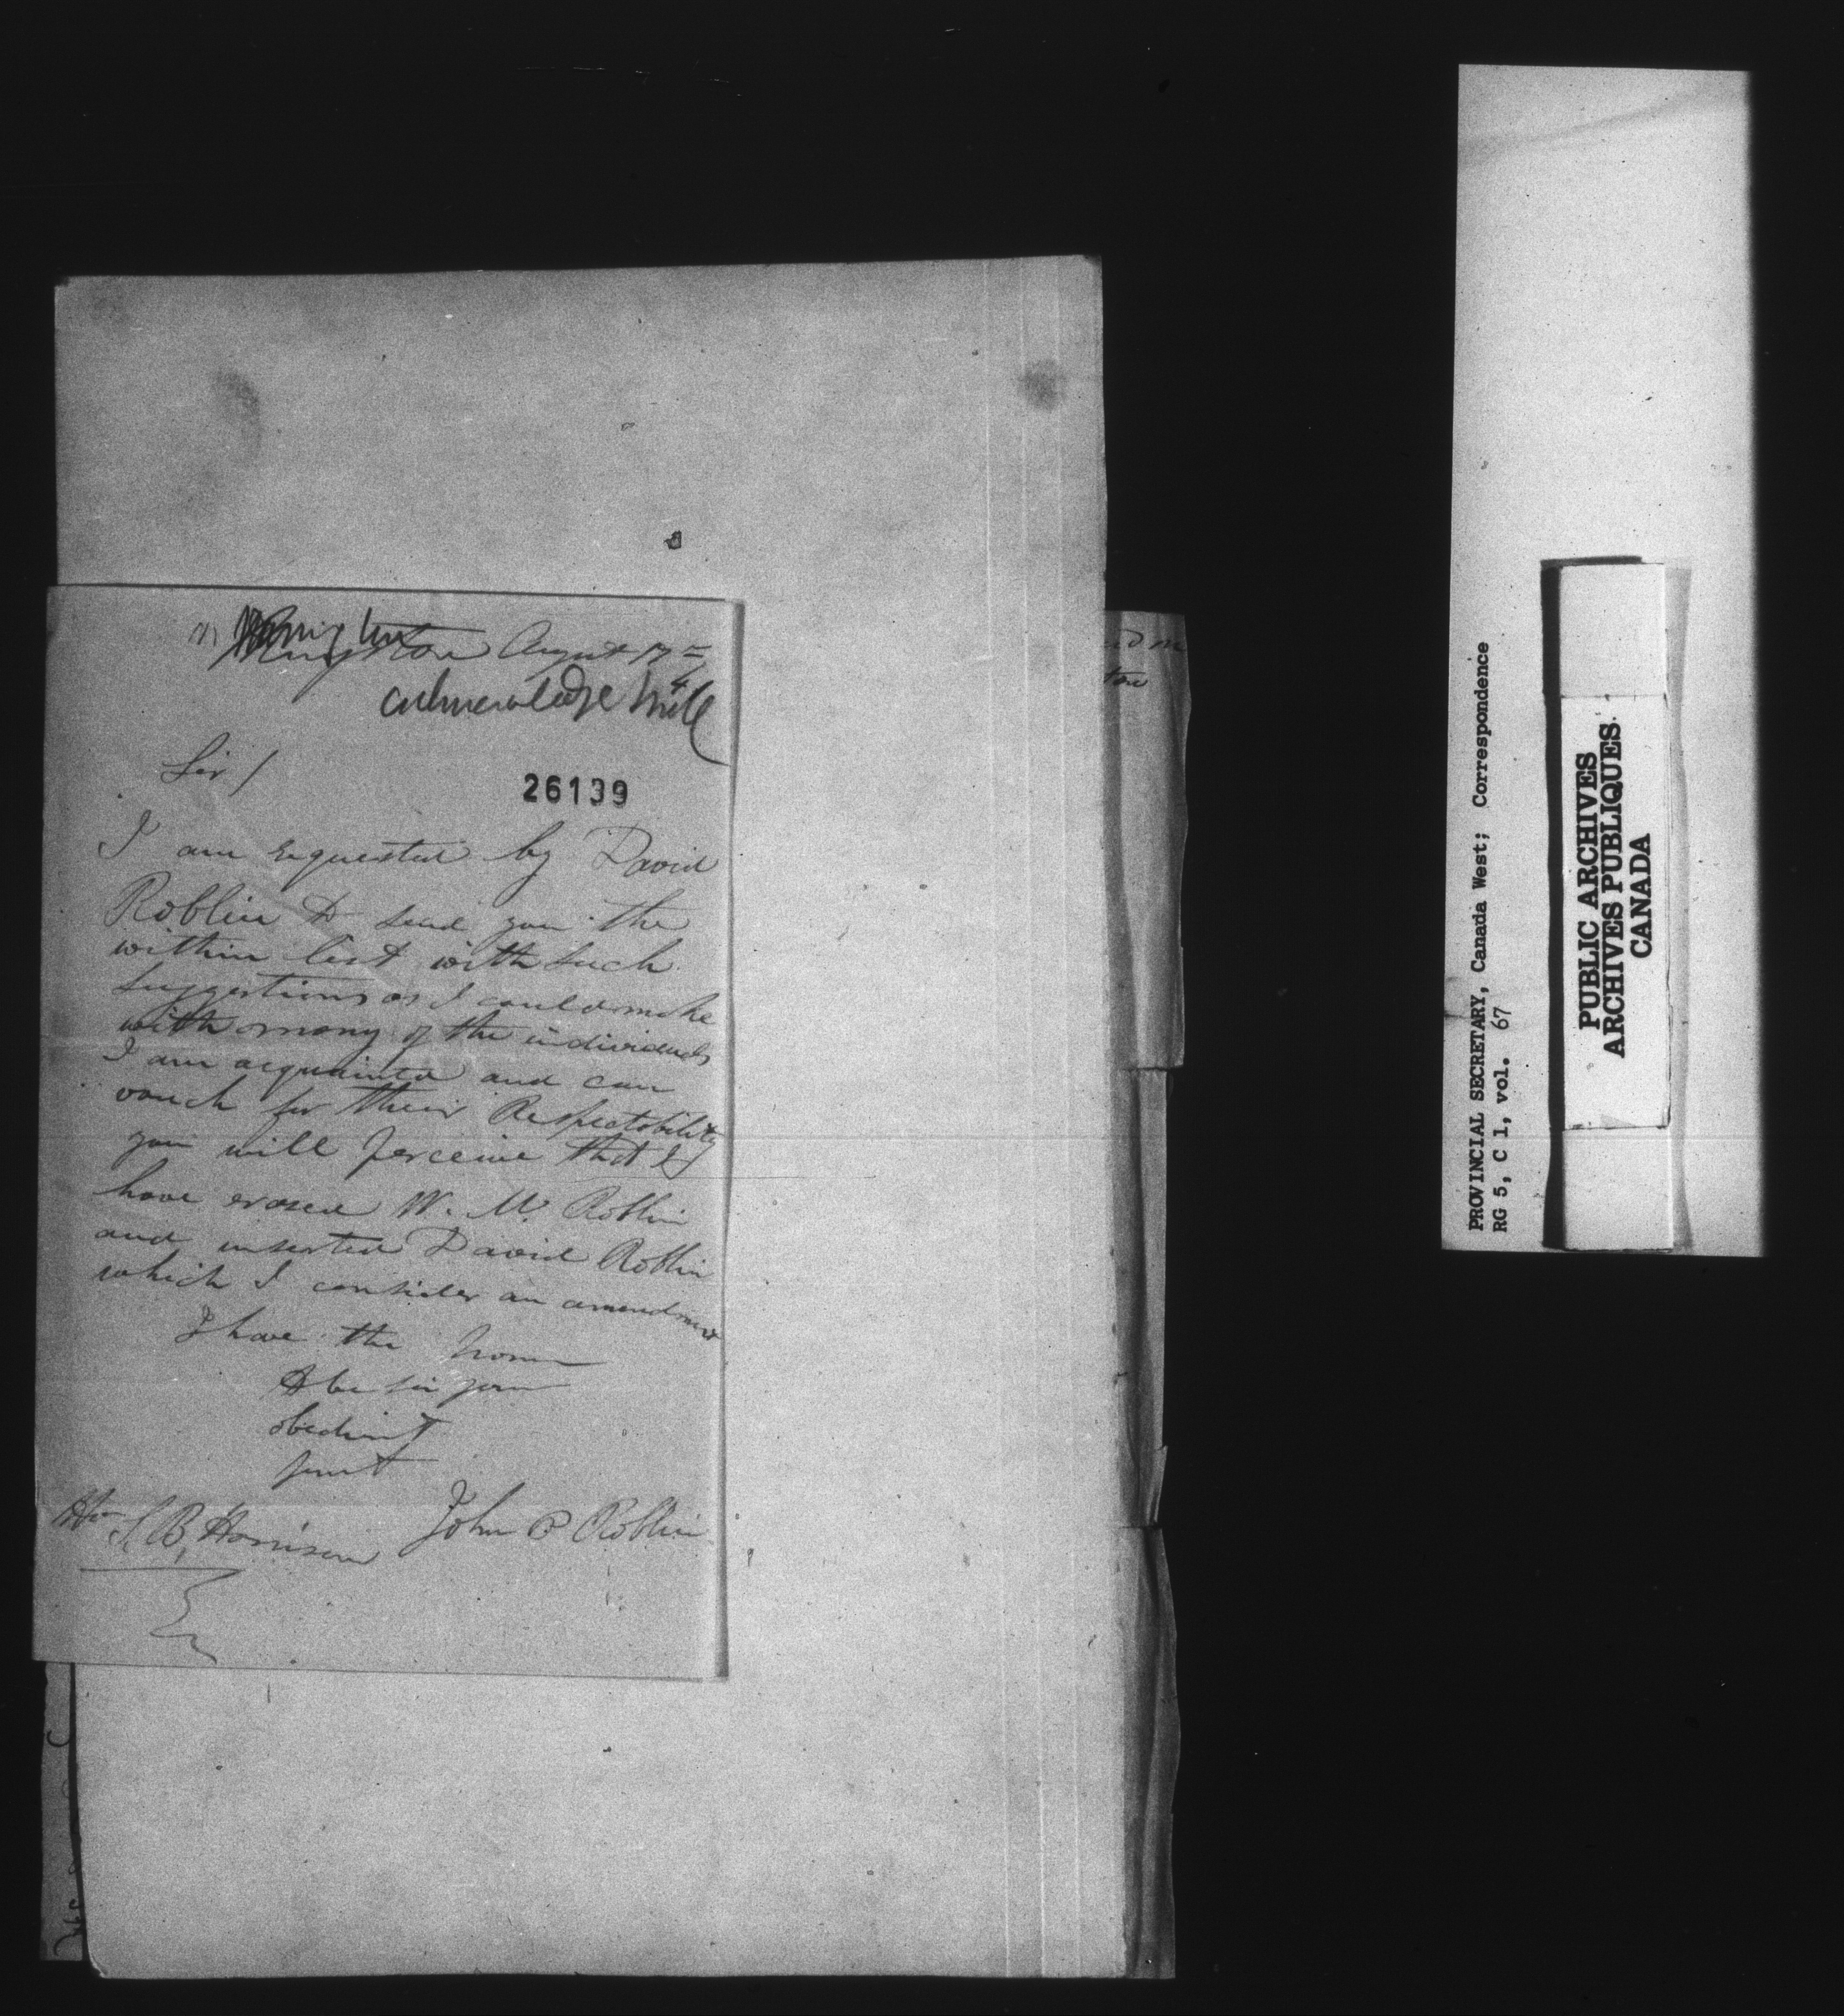 Kingston August 17th
acknowledge
Sir /
26139
I am requested by David
Roblin to send you the
within list with such
suggestions as I could make
with many of the individuals
I am acquainted and can
vouch for their Respectability
you will perceive that I
have erased W. M. Roblin
and inserted David Roblin
which I consider an amendment
I have the honor
to be sir your
obedient
servt
John P Roblin
Hon S. B. Harrison
PROVINCIAL SECRETARY, Canada West; Correspondence
RG 5, C 1, vol. 67
PUBLIC ARCHIVES
ARCHIVES PUBLIQUES
CANADA